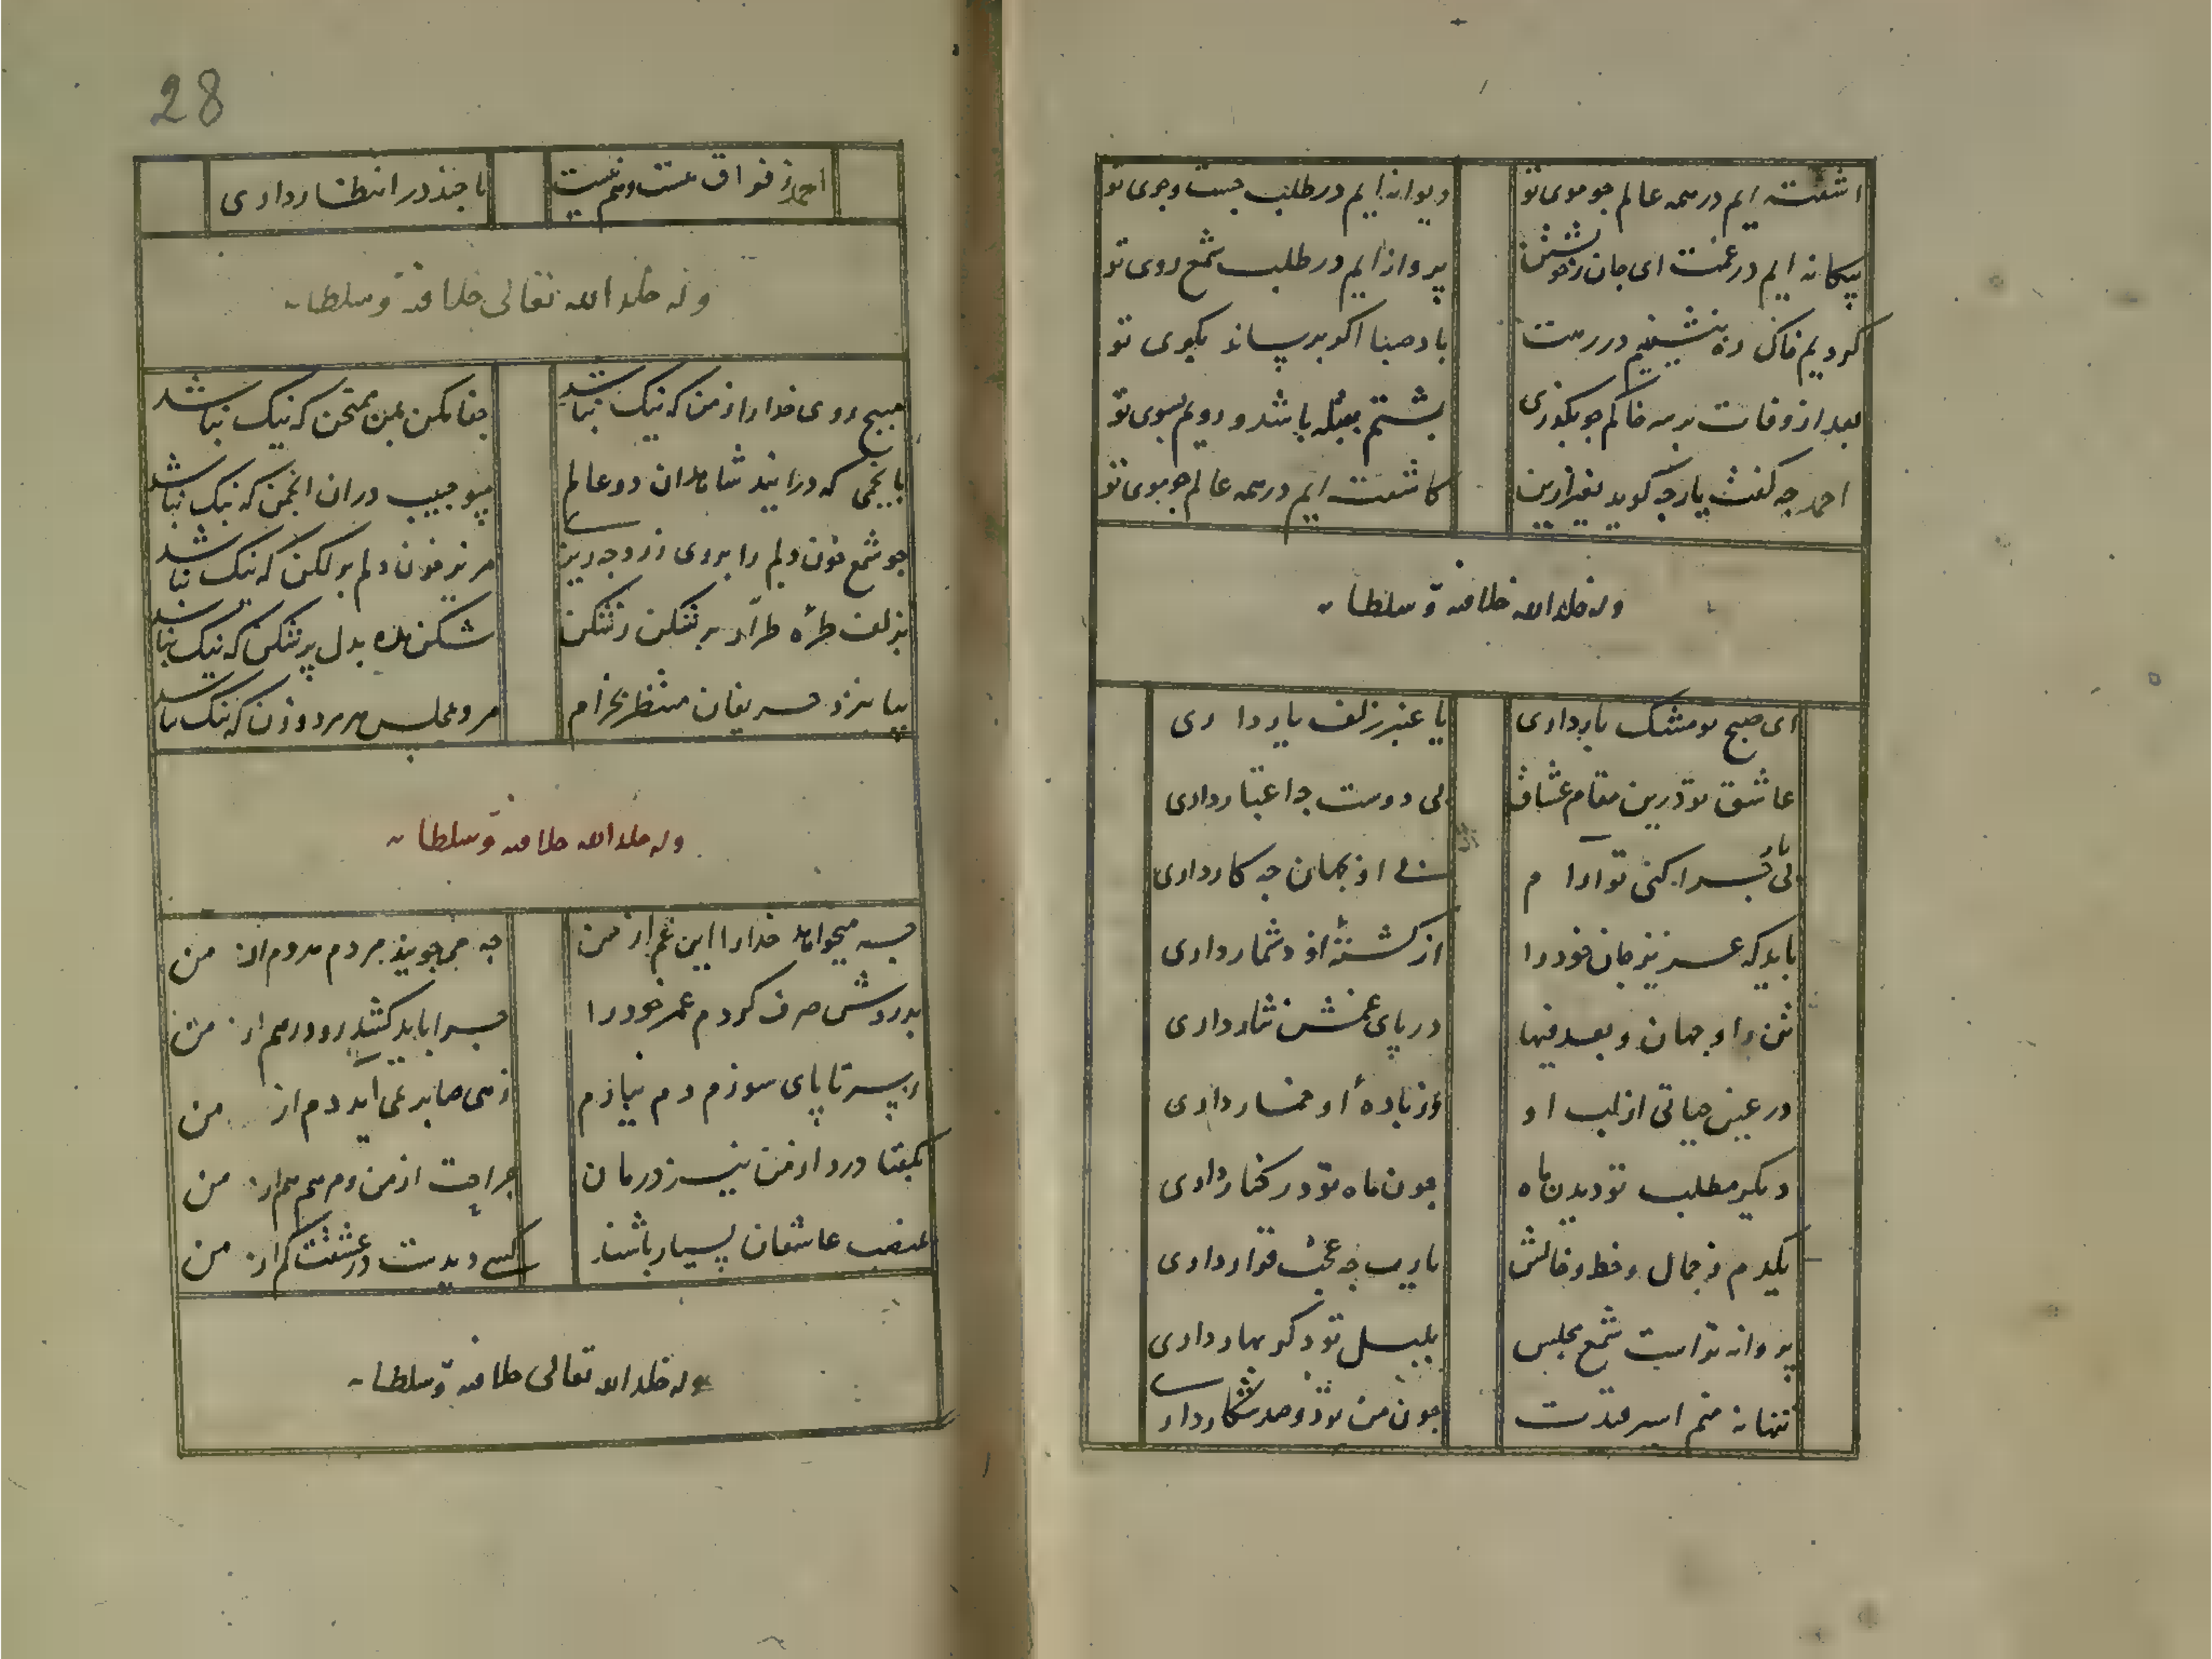 اشفته ایم در همه عالم جو موی تو
دیوانه ایم در طلب جست وجوی تو
بیکانه ایم در غمت ای جان ز خویشتن
پروانه ایم در طلب شمع روی تو
کردیم خاک ره بنشینیم در رهت
باد صبا اکر برساند بکوی تو
بعد از وفات بر سر خاکم جو بکذری
بشتم بقبله باشد و رویم بسوی تو
احمد جه کفت یار جه کوید بغیر ازین
کاشفته ایم در همه عالم جو موی تو
وله خلد الله خلافته و سلطانه
ای صبح تو مشک بار داری
یا عنبر زلف یار داری
عاشق تو درین مقام عشاق
بی دوست جه اعتبار داری
بی یار جرا کنی تو ارام
نی از جهان جه کار داری
باید که عزیز جان خود را
از کشته او شمار داری
در پای غمش نثار داری
در عین حیاتی از لب او
وز باده او خمار داری
دیکر مطلب تو دیدن ماه
جون ماه تو در کنار داری
یکدم ز جمال و خط و خالش
یا رب جه عجب قرار داری
پروانه تراست شمع مجلس
بلبل تو دکر بهار داری
تنها نه منم اسیر قدت
جون من تو دو صد شکار داری
28
احمد ز فراق مست وهم نیست
تا جند در انتظار داری
وله خلد الله تعالی خلافته و سلطانه
مپیج روی خدارا ز من که نیک نباشد
جفا مکن بمن ممتحن که نیک نباشد
بانجمی که درایند شاهدان دو عالم
مپو حبیب دران انجمن که نیک نباشد
جو شمع خون دلم را بروی زرد جه ریزی
مریز خون دلم بر لکن که نیک نباشد
بزلف طره طرار بر شکن ز شکن
شکن مده بدل پر شکن که نیک نباشد
بیا بنزد حریفان منتظر بخرام
مرو بمجلس هر مرد وزن که نیک نباشد
وله خلد الله خلافته و سلطانه
جه میخواهد خدارا این غم از من
جه می جویند مردم مردم از من
بدردش صرف کردم عمر خود را
جرا باید کشید رو درهم از من
ز سر تا پای سوزم دم نیازم
زهی صابر نمی اید دم از من
بکفتا درد از من نیز درمان
جراحت از من و مرهم هم از من
غضب عاشقان بسیار باشند
کسی دیدست در عشقت کم از من
وله خلد الله تعالی خلافته و سلطانه